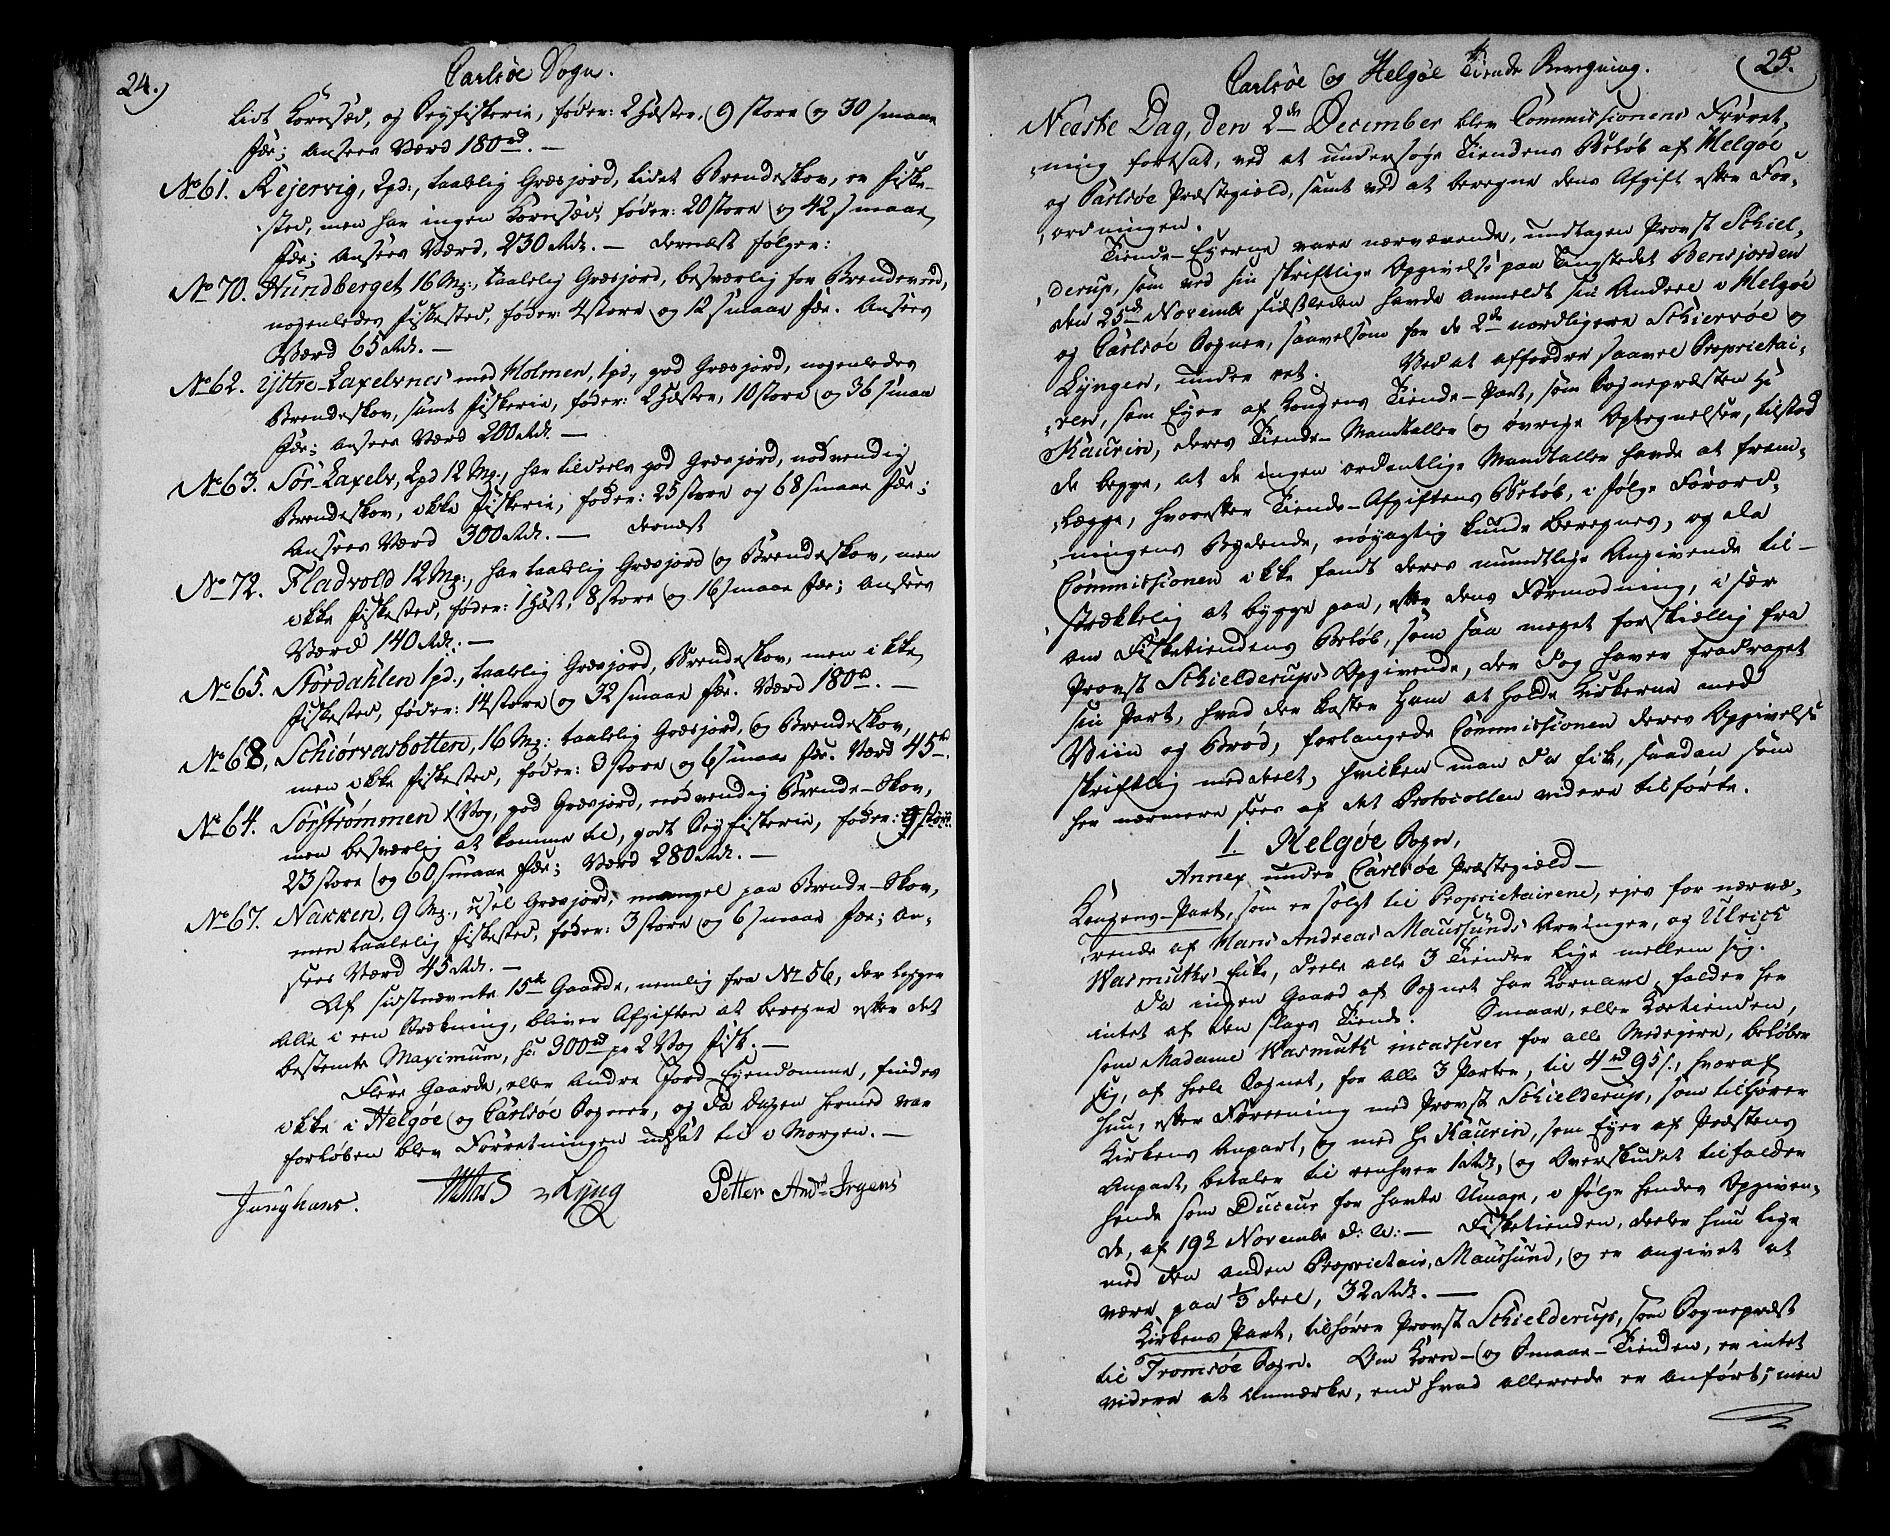 24.
Carlsøe Sogn.
lidt Kornsæd, og Søefiskerie, føder: 2 Hæster, 9 store og 30 smaae
Fæe; Ansees Værd 180 rd. —
No 61. Rejervig, 2pd., taalelig Græsjord, lidet Brendeskov, er Fiske-
sted, men har ingen Kornsæd, føder: 20 store og 42 smaae
Fæe; Ansees Værd, 230 Rdr. — dernæst følger:
No 70. Hundberget 16 Mg:, taalelig Græsjord, besværlig for Brendeved,
nogenledes Fiskested, føder: 4 store og 12 smaae Fæe. Ansees
Værd 65 Rdr. —
No 62. Yttre-Laxelvnes med Holmen, 1pd., god Græsjord, nogenledes
Brendeskov, samt Fiskerie, føder: 2 Hæster, 10 store og 36 smaae
Fæe; Ansees Værd 200 Rdr. —
No 63. Sør-Laxelv, 2pd 12 Mg., har tildeels god Græsjord, nødvendig
Brendeskov, ikke Fiskerie, føder: 25 store og 68 smaae Fæe;
Ansees Værd 300 Rdr. — dernæst
No 72. Fladvold 12 Mg:, har taalelig Græsjord og Brendeskov, men
ikke Fiskested, føder: 1 Hæst, 8 store og 16 smaae Fæe; Ansees
Værd 140 Rdr. —
No 65. Stordahlen 1pd., taalelig Græsjord, Brendeskov, men ikke
Fiskested, føder: 14 store og 32 smaae Fæe. Værd 180 rd. —
No 68, Schiørvasbotten, 16 Mg: taalelig Græsjord, og Brendeskov,
men ikke Fiskested, føder: 3 store og 6 smaae Fæe. Værd 45 rd.
No 64. Sørstrømmen 1 Vog, god Græsjord, nødvendig Brende-Skov,
men besværlig at komme til, godt Søefiskerie, føder:
23 store og 60 smaae Fæe; Værd 280 Rdr. —
No 67. Nakken, 9 Mg., usel Græsjord, mangel paa Brende-Skov,
men taalelig Fiskested, føder: 3 store og 6 smaae Fæe; An-
sees Værd 45 Rdr. —
Af sidstnævnte 15 Gaarde, nemlig fra No 56, der ligger
alle i een Strækning, bliver Afgiften at beregne efter det
bestemte Maximum, 300 rd pr 2 Vog Fisk. —
Flere Gaarde, eller andre Jord-Eiendomme, findes
ikke i Helgøe og Carlsøe Sogner, og da Dagen hermed var
forløben blev Forretningen udsat til i Morgen. —
Junghans. Lyng Petter Ands Irgens
25.
Carlsøe og Helgøe Tiende Beregning.
Næste Dag, den 2den December blev Commissionens Forret-
ning fortsat, ved at undersøge Tiendens Beløb af Helgøe
og Carlsøe Præstegield, samt ved at beregne dens Afgift efter For-
ordningen.
Tiende-Ejerne vare nærværende, undtagen Provst Schiel-
derup, som ved sin skriftlige Opgivelse paa Tingstedet Bensjorden
den 25de November sidstleden havde anmeldt sin Andeel i Helgøe
og Carlsøe Sogner, saavelsom for de 2de nordligere Schiervøe og
Lyngen, under ret. Ved at affordre saavel Proprietai-
ren, som Ejer af Kongens Tiende-Part, som Sognepræsten Hr
Kaurin, deres Tiende-Mandtaller og øvrige Optegnelser, tilstod
de begge, at de ingen ordentlige Mandtaller havde at frem-
lægge, hvorefter Tiende-Afgiftens Beløb, i følge Forord-
ningens Bydende, nøyagtig kunde beregnes, og da
Commissionen ikke fandt deres mundtlige Angivende til-
strækkelig at bygge paa, efter dens Formodning, i sær
om Fisketiendens Beløb, som saa meget forskiellig fra
Provst Schielderups Opgivende, der dog haver fradraget
sin Part, hvad der koster ham at holde Kirkerne med
Viin og Brød, forlangede Commissionen deres Opgivelse
skriftlig meddeelt, hvilken man da fik, saadan som
her nærmere sees af det Protocollen videre tilførte.
1. Helgøe Sogn,
Annex under Carlsøe Præstegield —
Kongens-Part, som er solgt til Proprietairene, ejes for nærvæ-
rende af Hans Andreas Maursunds Arvinger, og Ulrich
Wasmuths Enke, deele alle 3 Tiender lige mellem sig.
Da ingen Gaard af Sognet har Kornavl, falder her
intet af den slags Tiende. Smaae, eller Qvægtienden,
som Madame Wasmuth incasserer for alle Medejere, beløber
sig, af heele Sognet, for alle 3 Parter, til 4 rd 95 s., hvoraf
hun, efter Foreening med Provst Schielderup, som tilhører
Kirkens Anpart, og med Hr Kaurin, som Ejer af Præstens
Anpart, betaler til eenhver 1 Rdr, og Overskudet tilfalder
hende som Ducør for havte Umage, i følge hendes Opgiven-
de, af 19de Novembr d: A: — Fisketienden, deeler hun lige
med den anden Proprietair, Maursund, og er angivet at
være paa 1/3 deel, 32 Rdr. —
Kirkens Part, tilhører Provst Schielderup, som Sognepræst
til Tromsøe Sogn. Om Korn- og Smaae-Tienden, er intet
videre at anmærke, end hvad allereede er anført; men